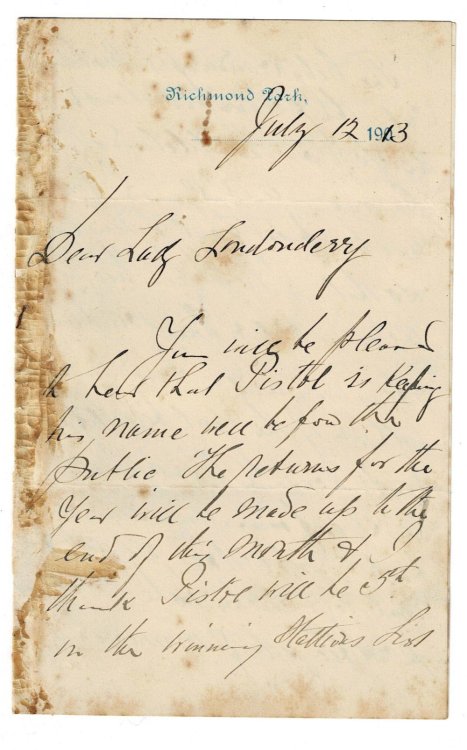 Richmond Park,
July 12 1913
Dear Lady Londonderry
You will be pleased
to hear that Pistol is Keeping
his name well before the
public The returns for the
Year will be made up to the
end of this month & I
think Pistol will be 5th
in the winning Stallions List